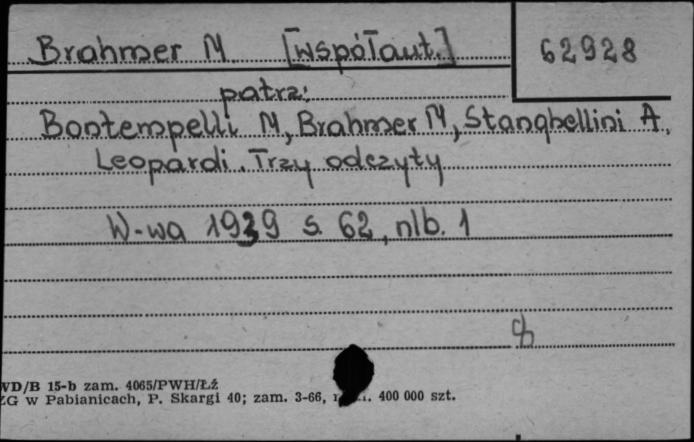 Brahmer M. [współaut.] 62928
patrz:
Bontempelli M, Brahmer M, Stanghellini A.
Leopardi. Trzy odczyty
W-wa 1939 s. 62, nlb. 1
WD/B 15-b zam. 4065/PWH/Łź
ZG w Pabianicach, P. Skargi 40; zam. 3-66, 400 000 szt.